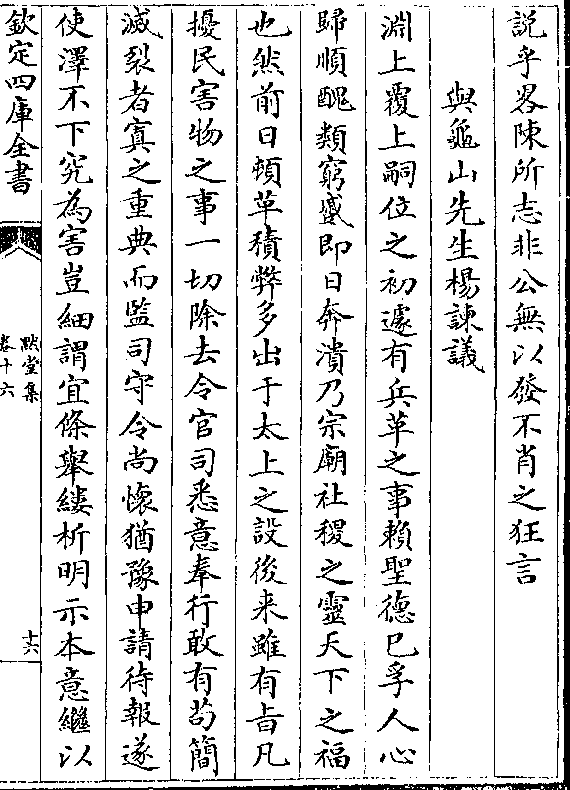 説乎畧陳所志非公無以發不肖之狂言
與龜山先生楊諫議
淵上覆上嗣位之初遽有兵革之事賴聖德已孚人心
歸順醜類窮蹙即日奔潰乃宗廟社稷之靈天下之福
也然前日頓革積弊多出于太上之設後来雖有旨凡
擾民害物之事一切除去令官司悉意奉行敢有苟簡
滅裂者寘之重典而監司守令尚懷猶豫申請待報遂
使澤不下究為害豈細謂宜條舉縷析明示本意繼以
欽定四庫全書
默堂集
卷十六
十六